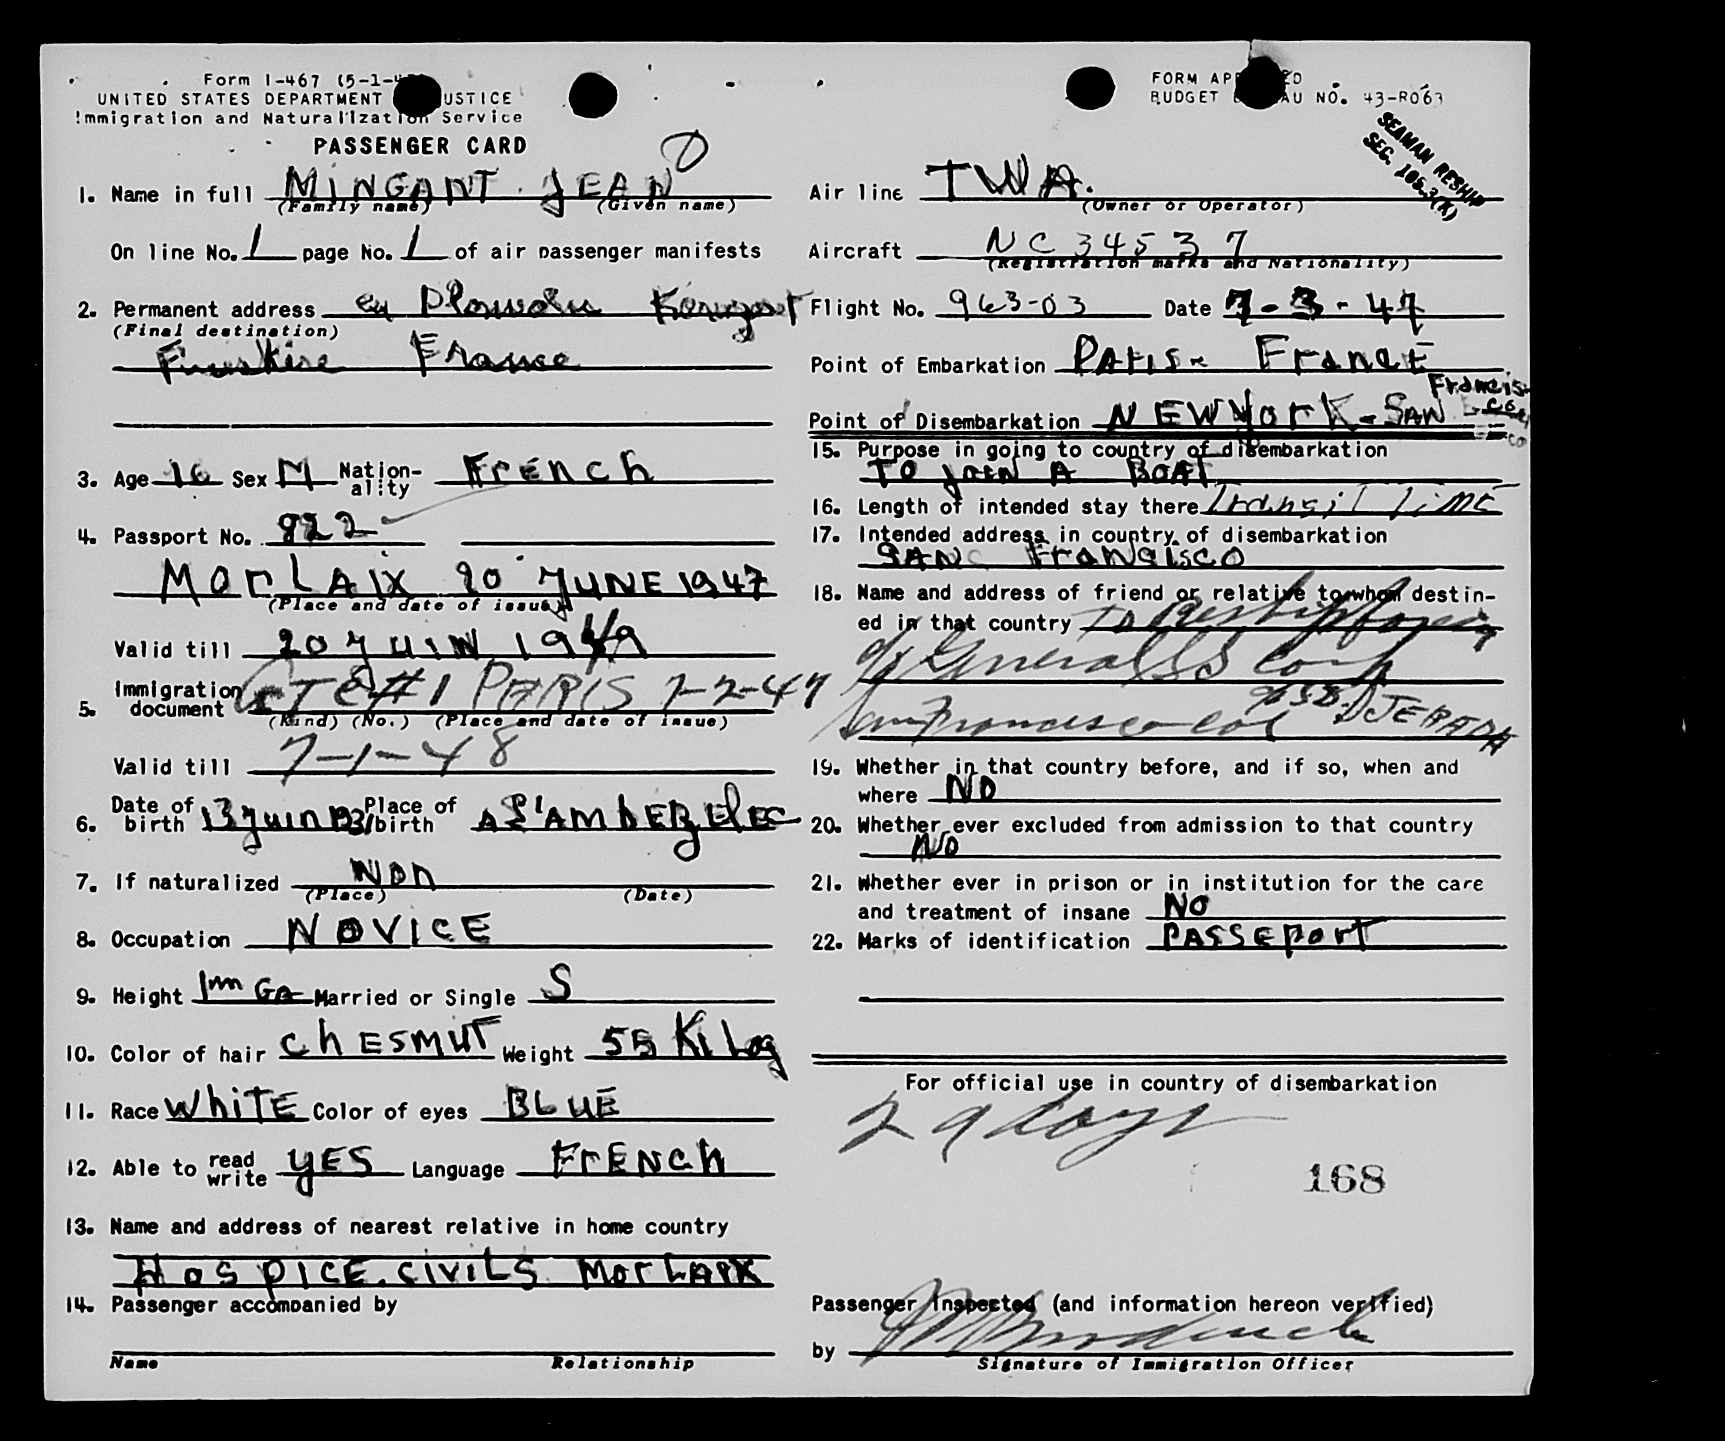 Form I-467 (5-1-
UNITED STATES DEPARTMENT USTICE
Immigration and Naturalization Service
PASSENGER CARD
1. Name in full MINGANT JEAN
(Family name) (Given name)
On line No. 1 page No. 1 of air passenger manifests
2. Permanent address en
(Final destination)
France
3. Age 16 Sex M Nation-ality FrENCh
4. Passport No. 822
MOrLAIX 20 JUNE 1947
(Place and date of issue)
Valid till 20 JUIN 1949
5. Immigration document CTE #1 PARIS 7-2-47
(Kind) (No.) (Place and date of issue)
Valid till 7-1-48
6. Date of birth 13 juin 1931 Place of birth
7. If naturalized NON
(Place) (Date)
8. Occupation NOVICE
9. Height 1m Married or Single S
10. Color of hair ChESMUT Weight 55 KiLog
11. Race WhiTE Color of eyes BLUE
12. Able to read write YES Language FrENCh
13. Name and address of nearest relative in home country
HOSPICE.CIVILS MOrLAIX
14. Passenger accompanied by
Name Relationship
FORM APP ED
BUDGET AU NO. 43-R063
SEAMAN RESHIP
SEC. 106.3(K)
Air line TWA.
(Owner or Operator)
Aircraft NC34537
(Registration marks and Nationality)
Flight No. 963-03 Date 7-3-47
Point of Embarkation PArIS FrANCE
Point of Disembarkation NEWYOrK-SAN Francis-co
15. Purpose in going to country of disembarkation
TO JOIN A BOAT
16. Length of intended stay there Transit TiME
17. Intended address in country of disembarkation
SAN FrANSISCO
18. Name and address of friend or relative to whom destin-
ed in that country To Reship foreign
c/o General SS Corp
San Francisco Cal SS DJERADA
19. Whether in that country before, and if so, when and
where NO
20. Whether ever excluded from admission to that country
NO
21. Whether ever in prison or in institution for the care
and treatment of insane NO
22. Marks of identification PASSEPOrT
For official use in country of disembarkation
29 days
168
Passenger Inspected (and information hereon verified)
by
Signature of Immigration Officer